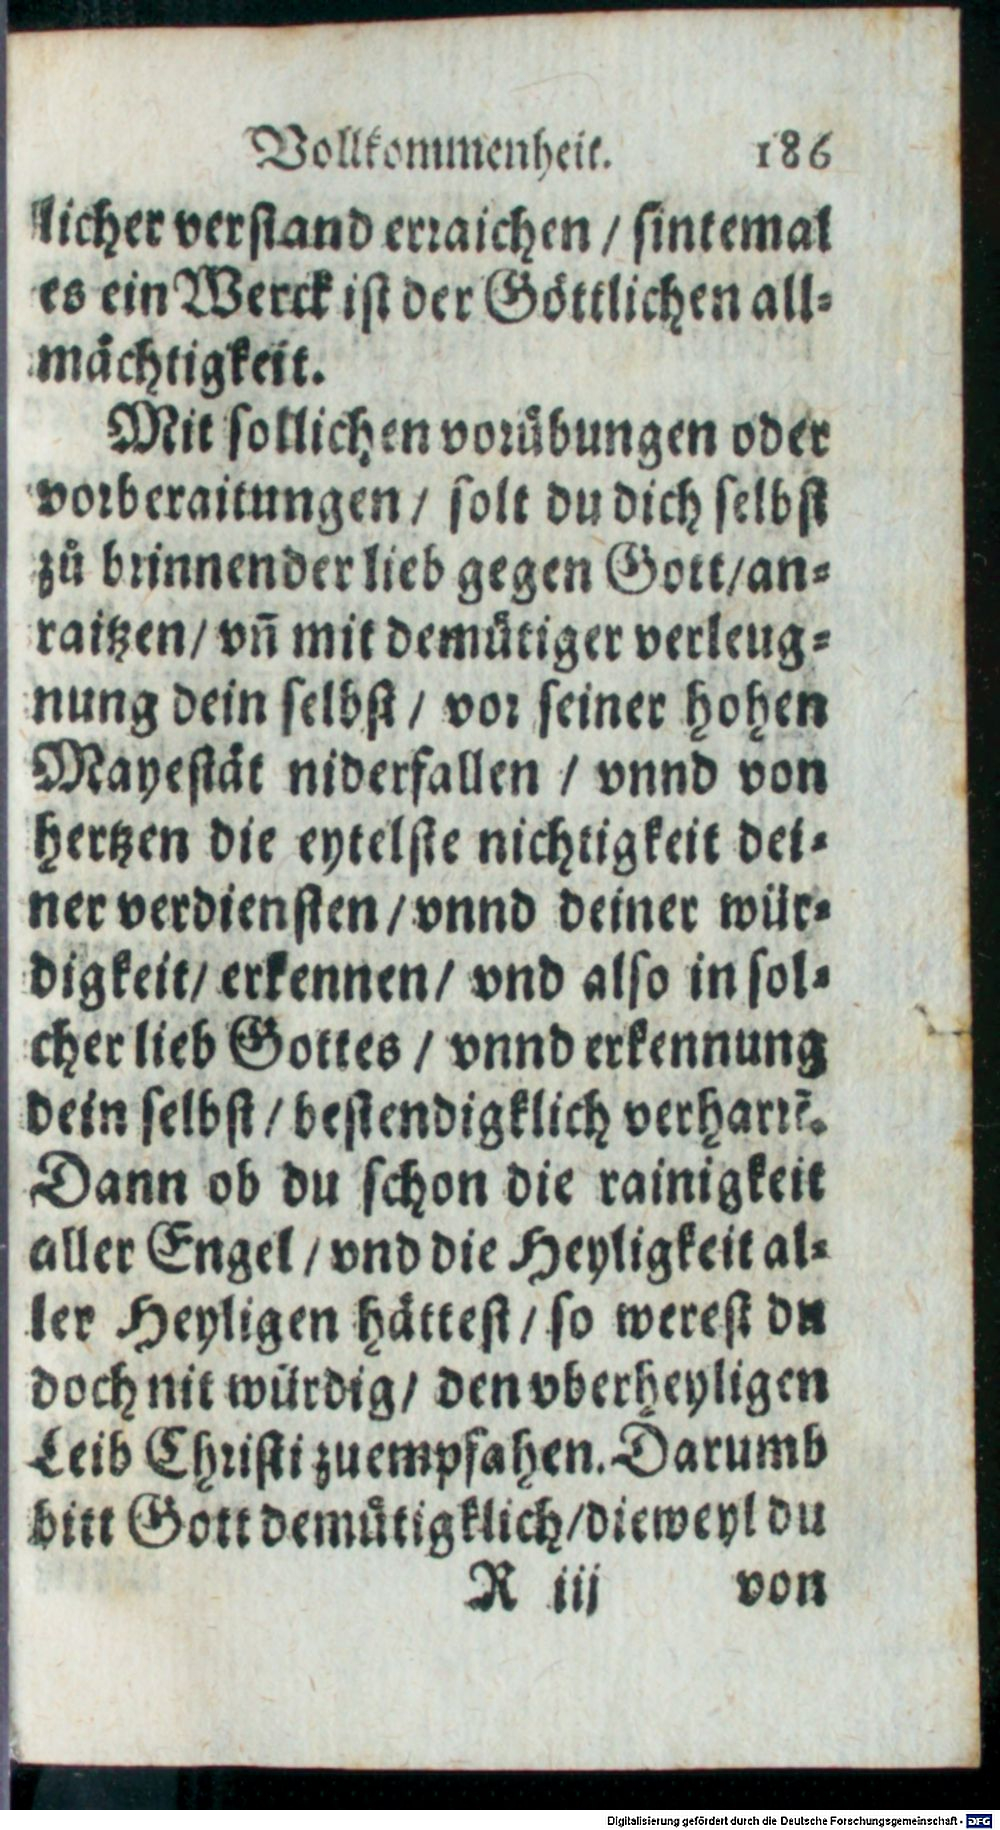 Vollkommenheit. 186
licher verſtand erꝛaichen / ſintemal
es ein Werck iſt der Göttlichen all⸗
maͤchtigkeit.
Mit ſollichen voꝛuͤbungen oder
voꝛberaitungen / ſolt du dich ſelbſt
zů bꝛinnender lieb gegen Gott / an⸗
raitzen / vñ mit demuͤtiger verleug⸗
nung dein ſelbſt / voꝛ ſeiner hohen
Mayeſtaͤt niderfallen / vnnd von
hertzen die eytelſte nichtigkeit dei⸗
ner verdienſten / vnnd deiner wür⸗
digkeit / erkennen / vnd alſo in ſol⸗
cher lieb Gottes / vnnd erkennung
dein ſelbſt / beſtendigklich verharꝛē.
Dann ob du ſchon die rainigkeit
aller Engel / vnd die Heyligkeit al⸗
ler Heyligen haͤtteſt / ſo wereſt du
doch nit würdig / den vberheyligen
Leib Chꝛiſti zuempfahen. Darumb
bitt Gott demuͤtigklich / dieweyl du
R iij von
Digitalisierung gefördert durch die Deutsche Forschungsgemeinschaft - DFG